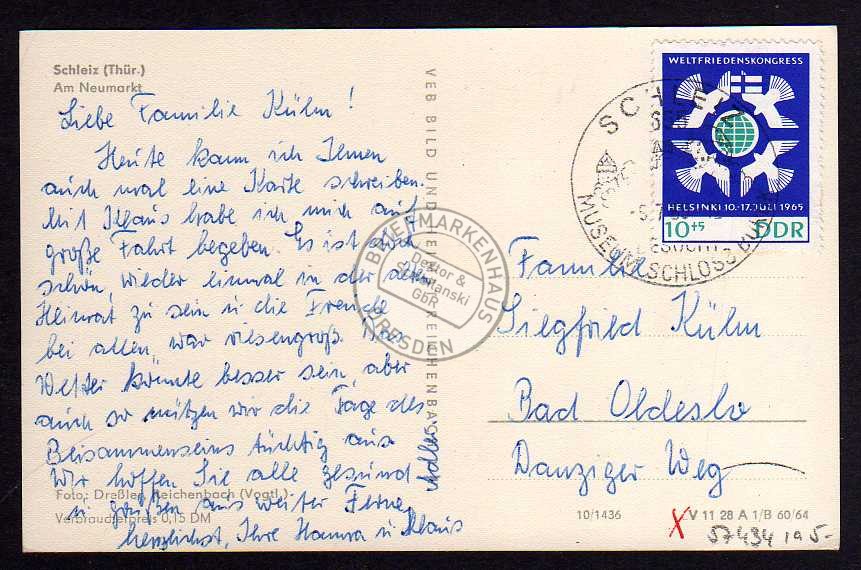 Schleiz (Thür.)
Am Neumarkt
Liebe Familie Kühn!
Heute kann ich Ihnen
auch mal eine Karte schreiben.
Mit Klaus habe ich mich auf
große Fahrt begeben. Es ist doch
schön, wieder einmal in der alten
Heimat zu sein u. die Freude
bei allen war riesengroß. Das
Wetter könnte besser sein, aber
auch so nützen wir die Tage des
Beisammenseins tüchtig aus.
Wir hoffen Sie alle gesund
u. grüßen aus weiter Ferne
herzlichst, Ihre u. Klaus
Adler
Foto: Dreßler, Reichenbach (Vogtl.)
Verbraucherpreis 0,15 DM
VEB BILD UND REICHENBACH
BRIEFMARKENHAUS
Deltor &
GbR
DRESDEN
WELTFRIEDENSKONGRESS
HELSINKI 10.-17. JULI 1965
10+5 DDR
SCHLEIZ
BESUCHT
MUSEUM SCHLOSS BURGK
Familie
Siegfried Kühn
Bad Oldeslo
Danziger Weg
10/1436
X V 11 28 A 1/B 60/64
57434 19 5-